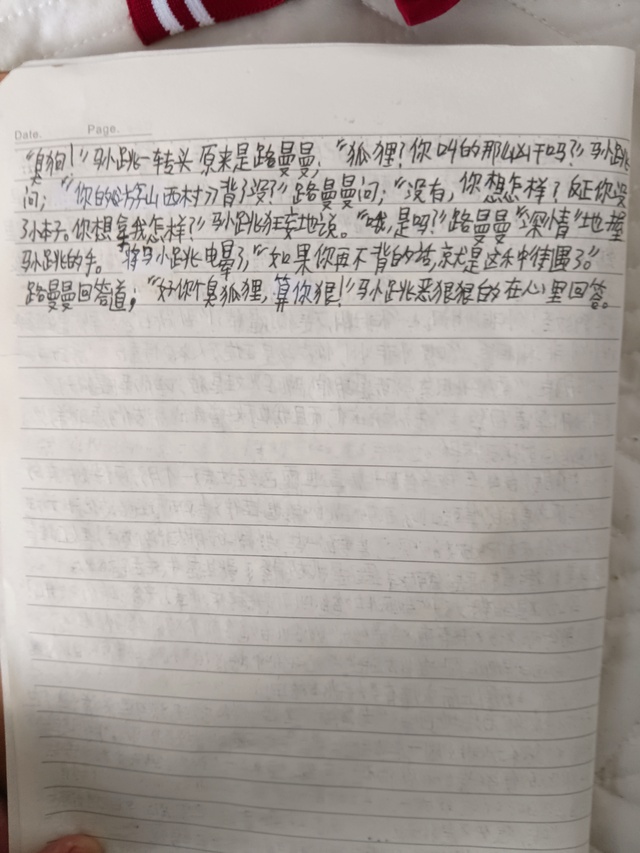 Date.  Page.
“臭狗！”马小跳一转头 原来是路曼曼，“狐狸？你叫的那么凶干吗？”马小跳
问；“你的《游山西村》背了没？”路曼曼问；“没有，你想怎样？反正你没
了小本子。你想拿我怎样？”马小跳狂妄地说。“哦，是吗？”路曼曼“深情”地握
马小跳的手。将马小跳电晕了，“如果你再不背的话，就是这次中街遇了。”
路曼曼回答道；“好你个臭狐狸，算你狠！”马小跳恶狠狠的在心里回答。